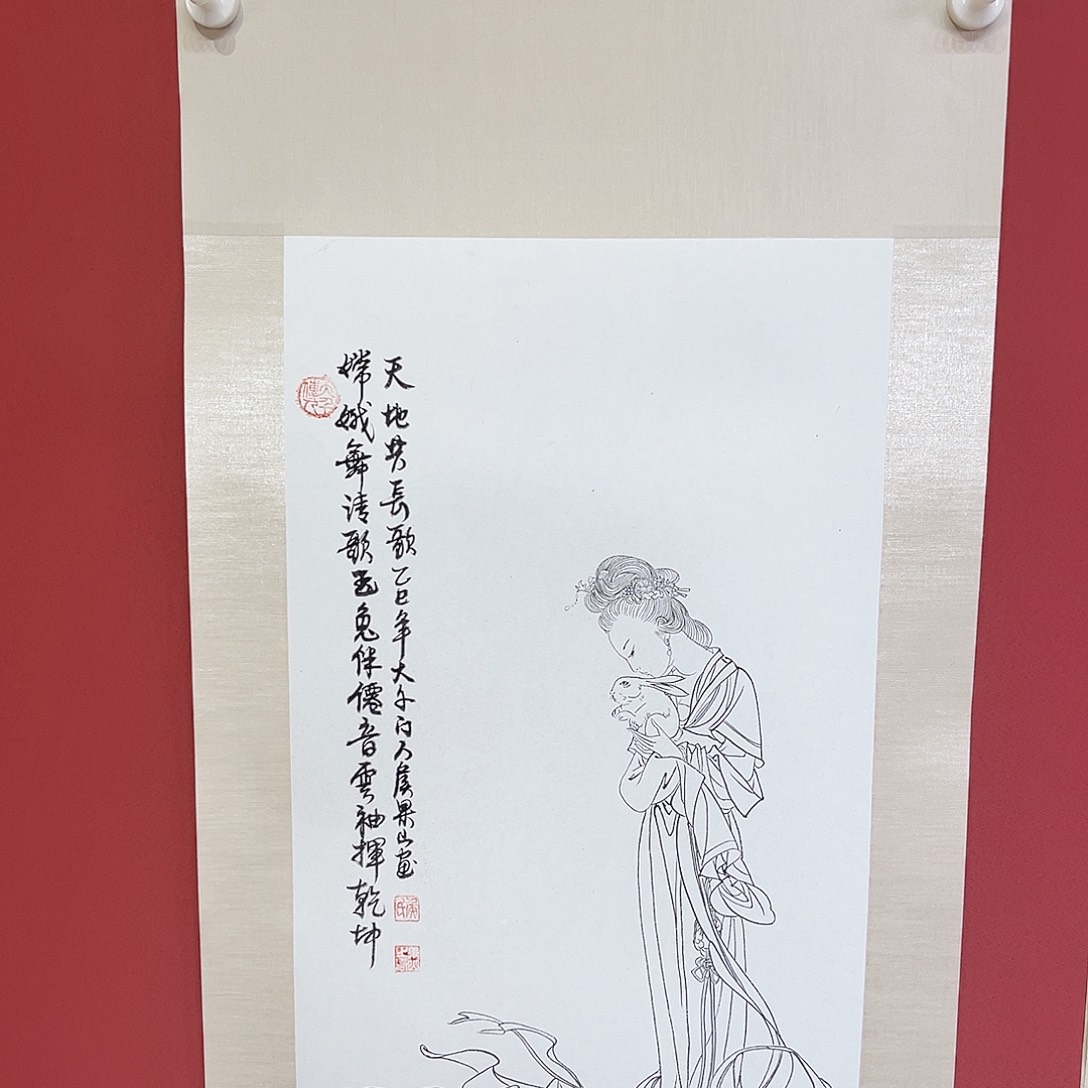 嫦娥舞清歌玉兔伴僊音雲袖揮乾坤
天地共長歌乙巳年大千门人侯果山畫